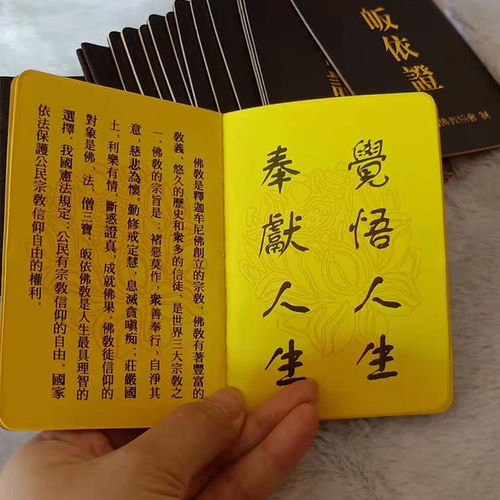 皈依證
教協會 製
覺悟人生
奉獻人生
佛教是釋迦牟尼佛創立的宗教，佛教有著豐富的
教義，悠久的歷史和衆多的信徒，是世界三大宗教之
一。佛教的宗旨是：褚惡莫作，衆善奉行，自淨其
意，慈悲為懷，勤修戒定慧，息滅貪嗔痴；莊嚴國
土，利樂有情，斷惑證真，成就佛果。佛教徒信仰的
對象是佛、法、僧三寶，皈依佛教是人生最具理智的
選擇。我國憲法規定，公民有宗教信仰的自由。國家
依法保護公民宗教信仰自由的權利。